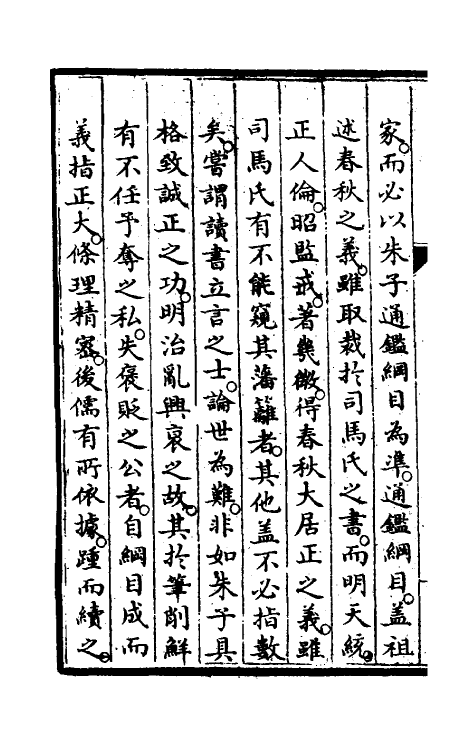 家。而必以朱子通鑑綱目為準。通鑑綱目。蓋祖
述春秋之義。雖取裁於司馬氏之書。而明天統。
正人倫。昭監戒。著幾微。得春秋大居正之義。雖
司馬氏有不能窺其藩籬者。其他盖不必指數
矣。嘗謂讀書立言之士。論世為難。非如朱子具
格致誠正之功。明治亂興衰之故。其於筆削鮮
有不任予奪之私。失褒貶之公者。自綱目成而
義指正大。條理精密。後儒有所依據。踵而續之。